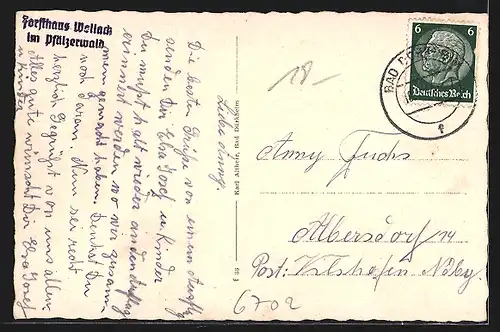 Forsthaus Weilach
im Pfälzerwald
Liebe Anny.
Die besten Grüße von einem Ausflug
senden Dir Elsa Josef u. Kinder
Du mußt halt wieder an den Ausflug
erinnert werden wo wir zusam
men gemacht haben. Denkst Du
noch daran. Nun sei recht
herzlich Gegrüßt von uns allen
Alles gute wünscht Dir Elsa Josef
u Kinder
Karl Altherr, Bad Dürkheim
F 39
18-
6
6
Deutsches Reich
BAD
f
Anny Fuchs
Albersdorf 14
Post: Vilshofen Ndby.
6702